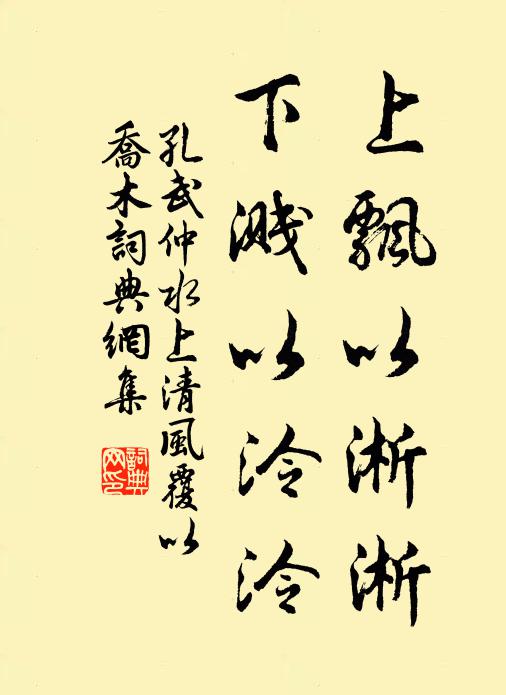 上飄以淅淅
下濺以泠泠
孔武仲水上清風覆以
喬木詞典網集
詞典
網印